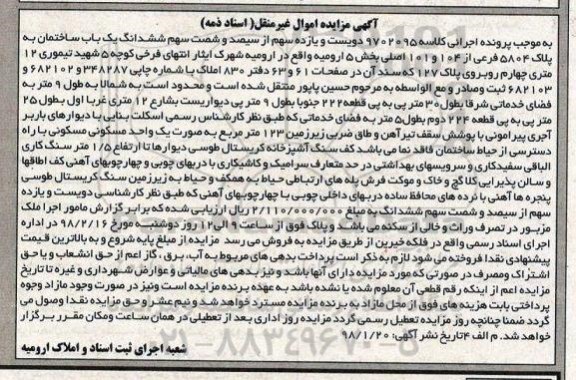 آگهی مزایده اموال غیرمنقل( اسناد ذمه)
به موجب پرونده اجرائی کلاسه ۹۷۰۲۰۹۵ دویست و یازده سهم از سیصد و شصت سهم ششدانگ یک باب ساختمان به
پلاک ۵۸۰۴ فرعی از ۱۰۴ و ۱۰۱ اصلی بخش ۵ ارومیه واقع در ارومیه شهرک ایثار انتهای فرخی کوچه ۵ شهید تیموری ۱۲
متری چهارم روبروی پلاک ۱۲۷ که سند آن در صفحات ۶۱ و ۶۳ دفتر ۸۳۰ املاک با شماره چاپی ۳۴۸۲۸۷ و ۶۸۲۱۰۲ و
۶۸۲۱۰۳ ثبت وصادر و مع الواسطه به مرحوم حسین پاپور منتقل شده است و محدود است به شمالا به طول ۹ متر به
فضای خدماتی شرقا بطول ۳۰ متر پی به پی قطعه ۲۲۲ جنوبا بطول ۹ متر پی دیواریست بشارع ۱۲ متری غربا اول بطول ۲۵
متر پی به پی قطعه ۲۲۴ دوم بطول ۵ متر به فضای خدماتی که طبق نظر کارشناس رسمی اسکلت بنایی با دیوارهای باربر
آجری پیرامونی با پوشش سقف تیرآهن و طاق ضربی زیرزمین ۱۲۳ متر مربع به صورت یک واحد مسکونی مسکونی با راه
دسترسی از حیاط ساختمان فاقد نما می باشد کف سنگ آشپزخانه کریستال طوسی دیوارها تا ارتفاع ۱/۵ متر سنگ کاری
الباقی سفیدکاری و سرویسهای بهداشتی در حد متعارف سرامیک و کاشیکاری با دربهای چوبی و چهارچوبهای آهنی کف اطاقها
و سالن پذیرایی کلا گچ و خاک و موکت فرش پله های ارتباطی حیاط به همکف و حیاط به زیرزمین سنگ کریستال طوسی
پنجره ها آهنی با نرده های محافظ ساده دربهای داخلی چوبی با چهارچوبهای آهنی که طبق نظر کارشناس دویست و یازده
سهم از سیصد و شصت سهم ششدانگ به مبلغ ۲/۱۱۰/۰۰۰/۰۰۰ ریال ارزیابی شده که برابر گزارش مامور اجرا ملک
مزبور در تصرف وراث و خالی از سکنه می باشد و پلاک فوق از ساعت ۹ الی ۱۲ روز دوشنبه مورخ ۹۸/۲/۱۶ در اداره
اجرای اسناد رسمی واقع در فلکه خیرین از طریق مزایده به فروش می رسد مزایده از مبلغ پایه شروع و به بالاترین قیمت
پیشنهادی نقدا فروخته می شود لازم به ذکر است پرداخت بدهی های مربوط به آب، برق، گاز اعم از حق انشعاب و یا حق
اشتراک ومصرف در صورتی که مورد مزایده دارای آنها باشد و نیز بدهی های مالیاتی و عوارض شهرداری و غیره تا تاریخ
مزایده اعم از اینکه رقم قطعی آن معلوم شده یا نشده باشد به عهده برنده مزایده است ونیز در صورت وجود مازاد وجوه
پرداختی بابت هزینه های فوق از محل مازاد به برنده مزایده مسترد خواهد شد و نیم عشر و حق مزایده نقدا وصول می
گردد ضمنا چنانچه روز مزایده تعطیل رسمی گردد مزایده روز اداری بعد از تعطیلی در همان ساعت ومکان مقرر برگزار
خواهد شد. م الف ۴ تاریخ نشر آگهی: ۹۸/۱/۲۰
شعبه اجرای ثبت اسناد و املاک ارومیه